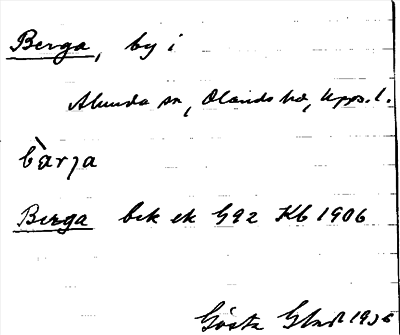 Berga, by i
Alunda sn, Olands hd, Upps. l.
bàrja
Berga bek ek G92 Kb 1906
Gösta